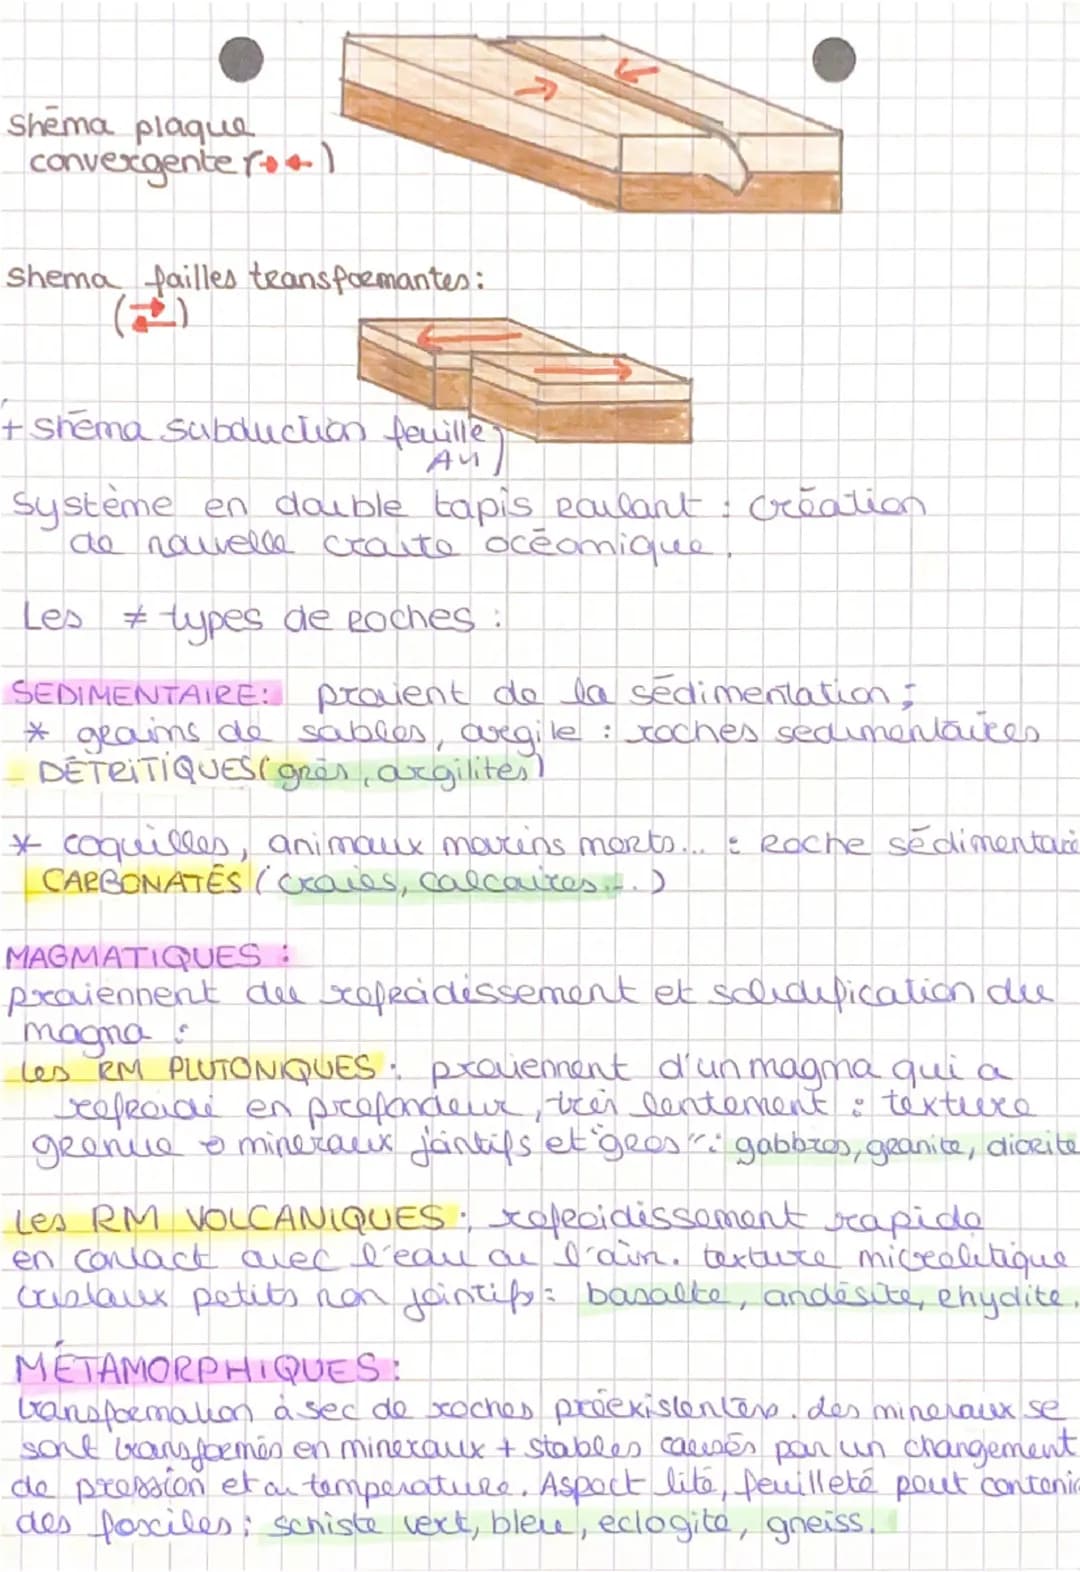 shēma plaque
convergente (→←)
shema failles transformantes:
(⇄)
+ shēma subduction feuille
A4)
Système en double tapis roulant : création
de nouvelle croûte océanique.
Les ≠ types de roches :
SEDIMENTAIRE: provient de la sédimentation ;
* grains de sables, argile : roches sedimentaires
DÉTRITIQUES (grès, argilites)
* coquilles, animaux marins morts... : Roche sédimentaire
CARBONATÉS (craies, calcaires...)
MAGMATIQUES :
proviennent du refroidissement et solidification du
magna :
Les RM PLUTONIQUES : proviennent d'un magma qui a
refroidi en profondeur, très lentement : texture
grenue → mineraux jointifs et "gros" : gabbros, granite, diorite
Les RM VOLCANIQUES : refroidissement rapide
en contact avec l'eau ou l'air. texture microlitique
cristaux petits non jointifs : basalte, andésite, rhyolite.
MÉTAMORPHIQUES :
transformation à sec de roches préexistentes. des mineraux se
sont transformés en mineraux + stables causés par un changement
de pression et ou temperature. Aspect lité, feuilleté peut contenir
des fosciles : schiste vert, bleu, eclogite, gneiss.